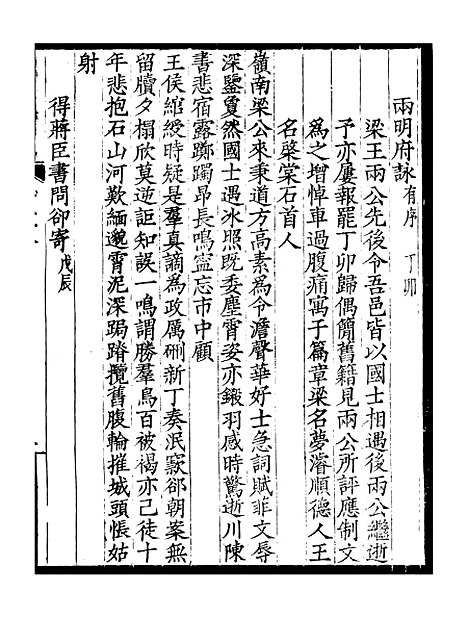 兩明府詠有序 丁卯
梁王兩公先後令吾邑皆以國士相遇後兩公繼逝
予亦屢報罷丁卯歸偶簡舊籍見兩公所評應制文
爲之增悼車過腹痛寓子篇章梁名夢濬順德人王
名棨棠石首人
嶺南梁公來秉道方高素爲令澹聲華好士急詞賦菲文辱
深鑒敻然國士遇冰照既委塵霄姿亦鎩羽感時驚逝川陳
書悲宿露躑躅昂長鳴寍忘市中顧
王侯綰綬時疑是羣真謫爲政厲硎新丁奏泯窾郤朝案無
留牘夕榻欣莫逆詎知誤一鳴謂勝羣鳥百被褐亦已徒十
年悲抱石山河歎緬邈霄泥深跼蹐攬舊腹輪摧城頭悵姑
射
得蔣臣書問卻寄戊辰